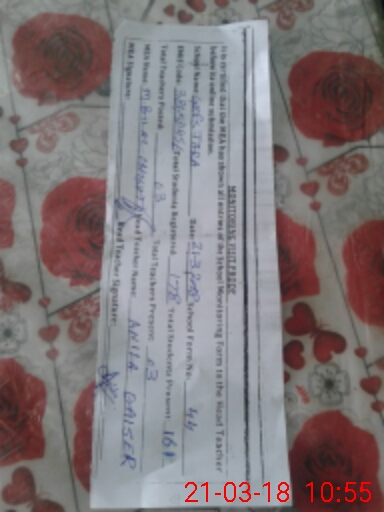 MONITORING VISIT PROOF
It is certified that the MEA has shown all entries of the School Monitoring Form to the Head Teacher
before its online submission.
School Name: GGPS TARA Date: 21-3-2018 School Form No. 44
EMIS Code: Total Students Registered: 178 Total Students Present: 161
Total Teachers Posted: 03 Total Teachers Present: 03
MEA Name: M BILAL Head Teacher Name: ANILA QAISER
MEA Signature: Head Teacher Signature:
21-03-18 10:55